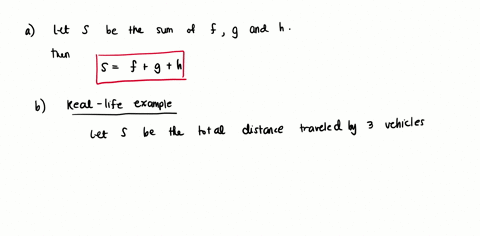 a) Let S be the sum of f, g and h.
then
S = f + g + h
b) Real-life example
Let S be the total distance traveled by 3 vehicles